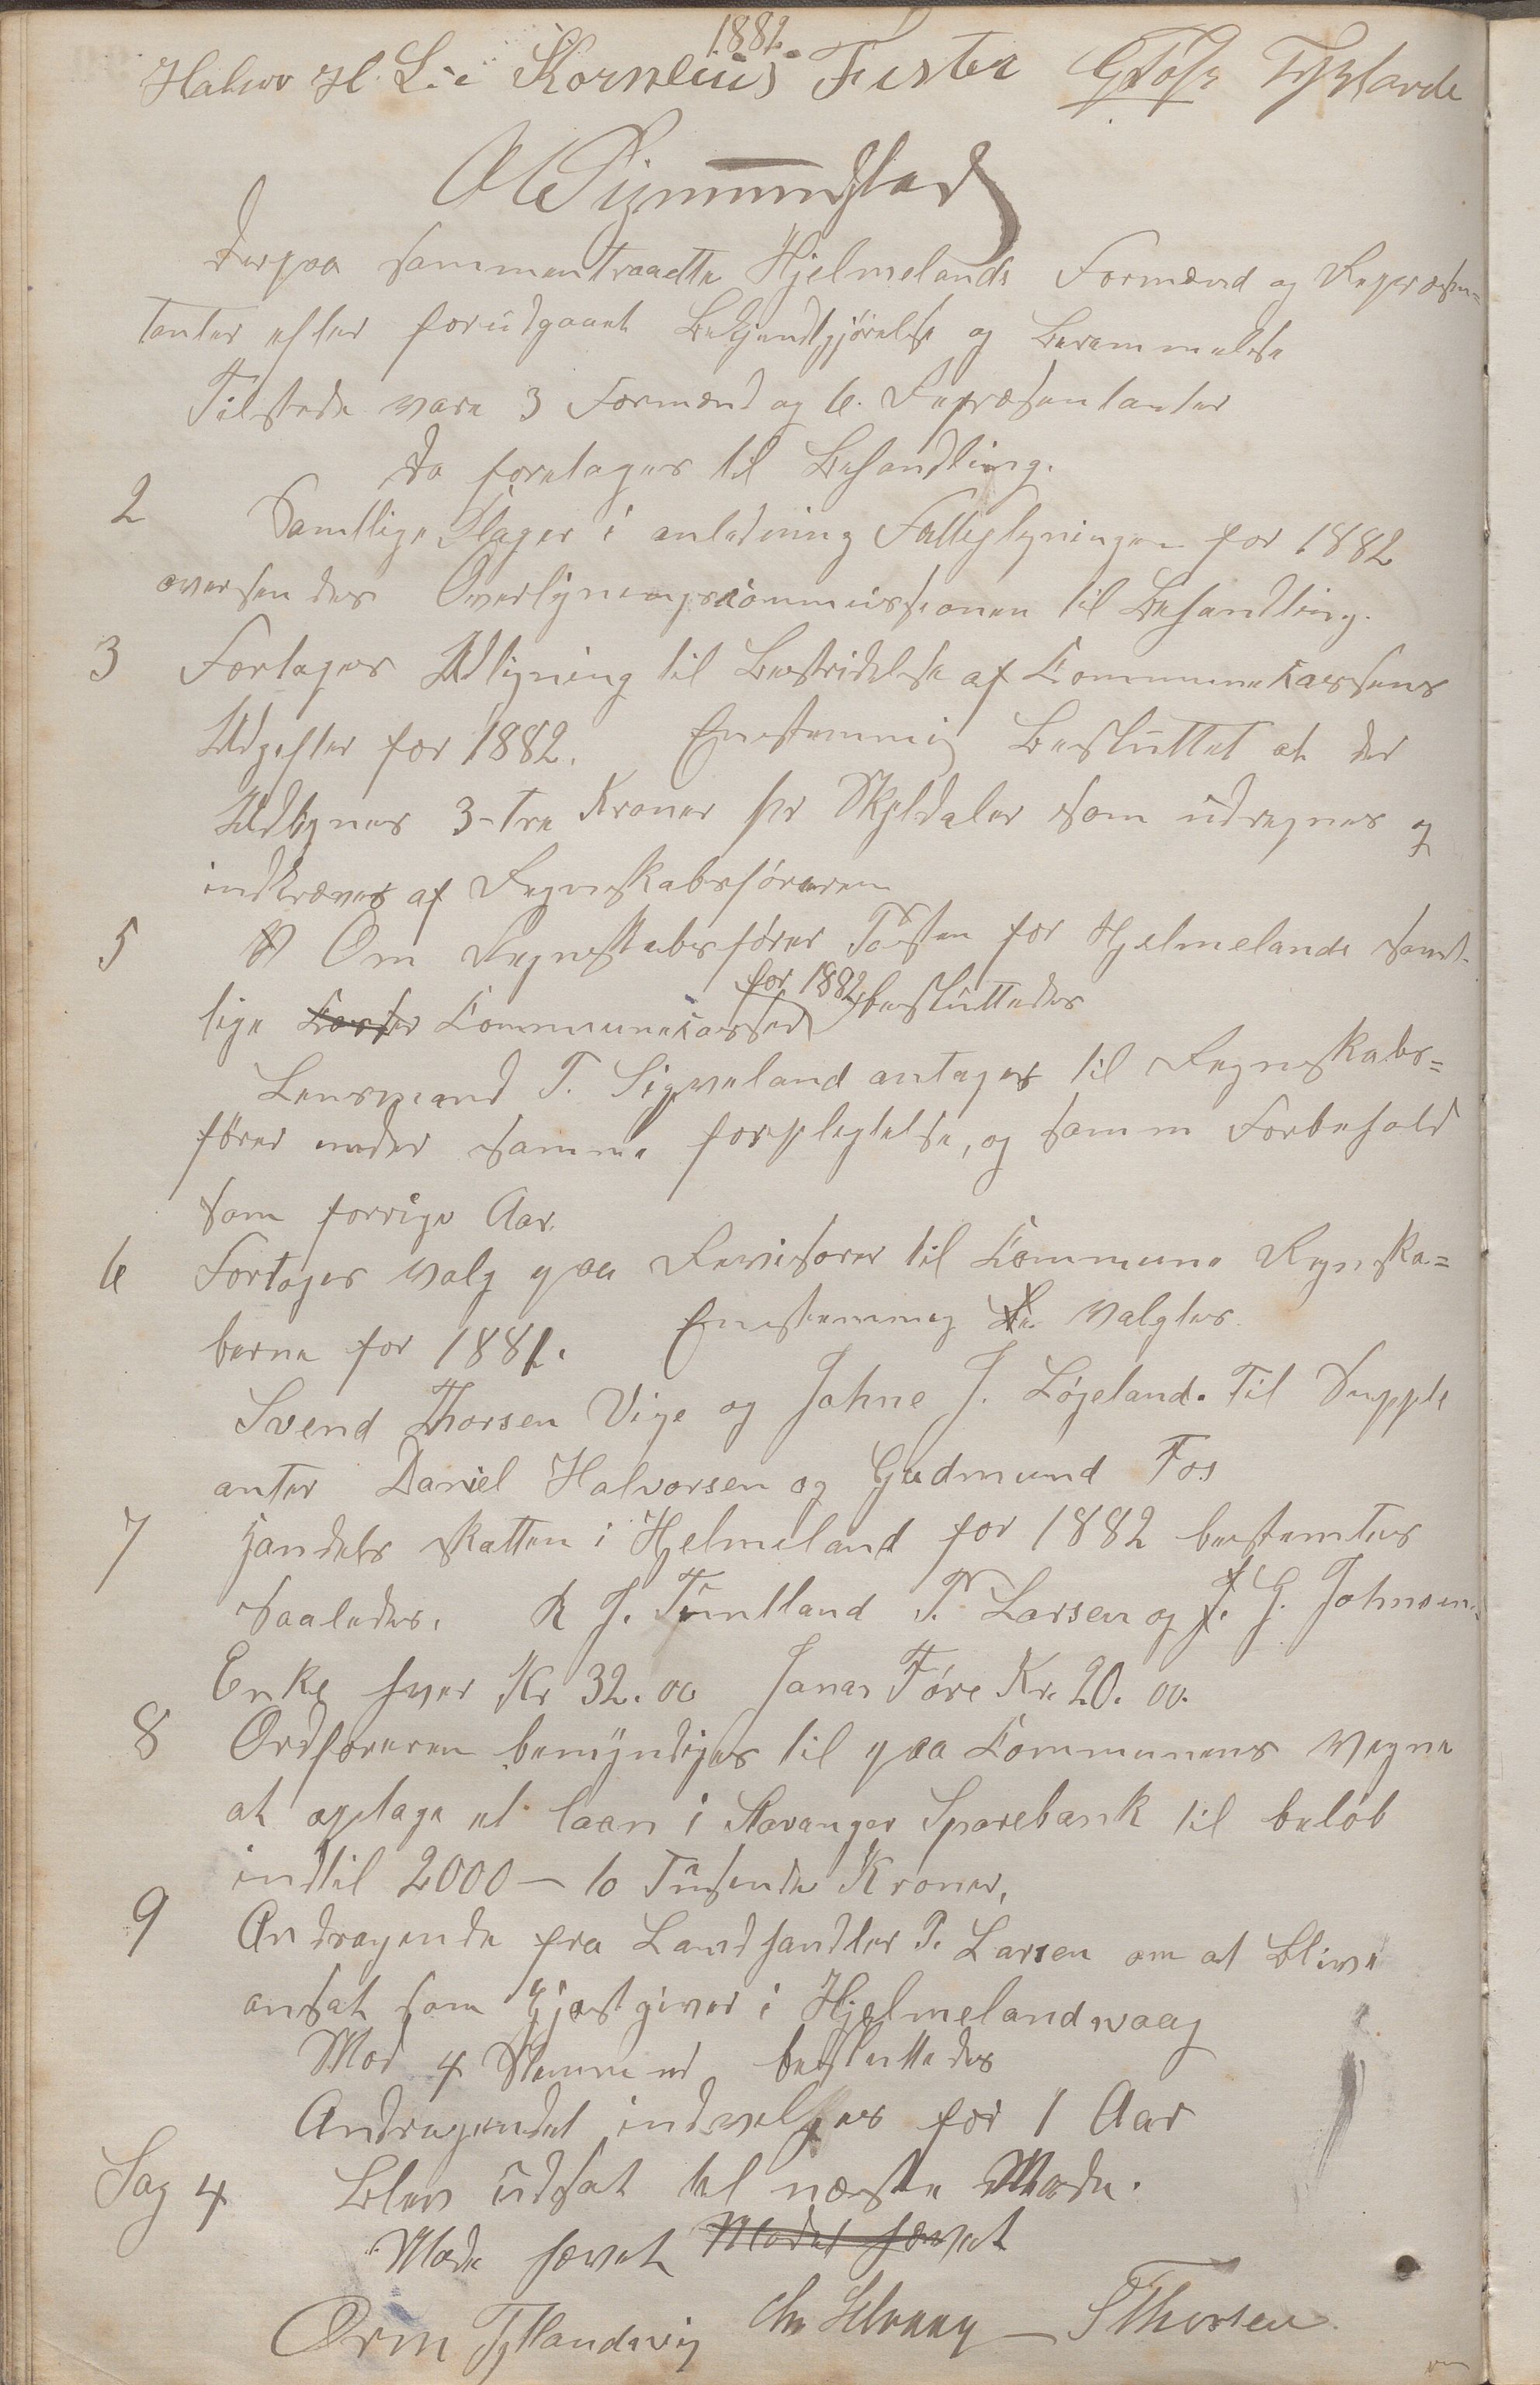 1882.
Halvor H. Lie Kornelius Fister GTøsse Tytlandv
OASigmundstad
Derpaa sammentraadte Hjelmelands Formænd og Repræsen=
tanter efter forudgaaet Bekjendtgjørelse og Berammelse
Tilstede vare 3 Formænd og 6. Repræsentanter
Da foretages til Behandling.
2 Samtlige Klager i anledning Fattigligningen for 1882
oversendes Overligningscommissionen til Behandling.
3 Foretages Udligning til Bestridelse af Communekassens
Udgifter for 1882. Enstemmig Besluttet at der
Udlignes 3-tre Kroner pr Skyldaler som udregnes og
indkræves af Regnskabsføreren
5 Om Regnskabsfører Posten for Hjelmelands samt-
lige Casser Communekasser for 1882 besluttedes
Lensmand T. Sigveland antages til Regnskabs=
fører under samme forpligtelse, og samme Forbehold
som forrige Aar.
6 Fortages valg paa Revisorer til Commune Regnska=
berne for 1881. Enstemmig valgtes.
Svend Thorsen Vige og Johne J. Løgeland. Til Supple
anter Daniel Halvorsen og Gudmund Fos
7 Handels skatten i Hjelmeland for 1882 bestemtes
saaledes. R J. Tuntland P. Larsen og J. G. Johnsen
Enke hver Kr 32.00 Jonas Føre Kr. 20.00.
8 Ordføreren bemyndiges til paa Communens vegne
at optage et laan i Stavanger Sparebank til beløb
indtil 2000 – to Tusende Kroner,
9 Andragende fra Landhandler P. Larsen om at blive
ansat som Gjæstgiver i Hjelmelandsvaag
Mod 4 Stemmer besluttedes
Andragendet indvilges for 1 Aar
Sag 4 Blev udsat til næste Møde.
Møde hævet Mødet hævet
Orm Tytlandsvig SThorsen